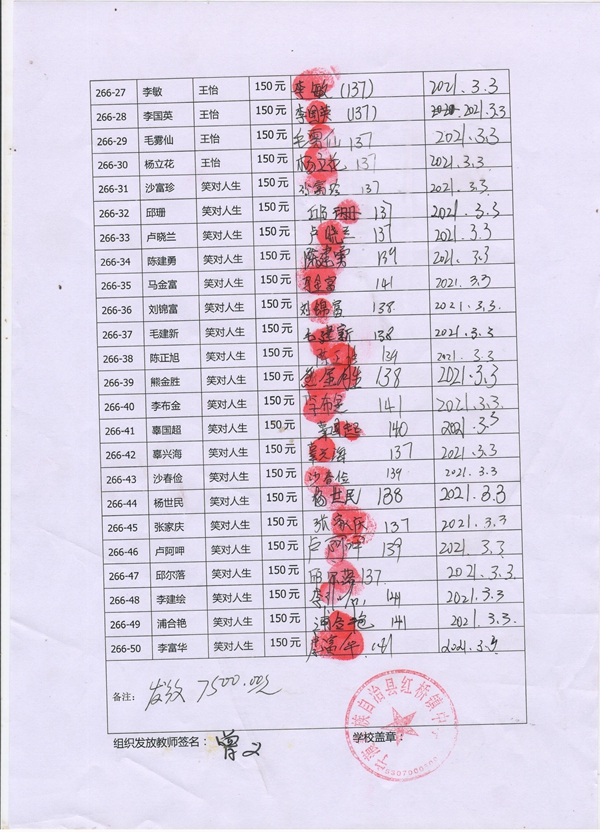 266-27 李敏 王怡 150元 李敏 (137) 2021.3.3
266-28 李国英 王怡 150元 李国英 (137) 2021.3.3
266-29 毛雾仙 王怡 150元 毛雾仙 137 2021.3.3
266-30 杨立花 王怡 150元 杨立花 137 2021.3.3
266-31 沙富珍 笑对人生 150元 沙富珍 137 2021.3.3
266-32 邱珊 笑对人生 150元 邱珊 137 2021.3.3
266-33 卢晓兰 笑对人生 150元 卢晓兰 137 2021.3.3
266-34 陈建勇 笑对人生 150元 陈建勇 139 2021.3.3
266-35 马金富 笑对人生 150元 马金富 141 2021.3.3
266-36 刘锦富 笑对人生 150元 刘锦富 138 2021.3.3
266-37 毛建新 笑对人生 150元 毛建新 138 2021.3.3
266-38 陈正旭 笑对人生 150元 陈正旭 139 2021.3.3
266-39 熊金胜 笑对人生 150元 熊金胜 138 2021.3.3
266-40 李布金 笑对人生 150元 李布金 141 2021.3.3
266-41 辜国超 笑对人生 150元 辜国超 140 2021.3.3
266-42 辜兴海 笑对人生 150元 辜兴海 137 2021.3.3
266-43 沙春俭 笑对人生 150元 沙春俭 139 2021.3.3
266-44 杨世民 笑对人生 150元 杨世民 138 2021.3.3
266-45 张家庆 笑对人生 150元 张家庆 137 2021.3.3
266-46 卢阿呷 笑对人生 150元 卢阿呷 139 2021.3.3
266-47 邱尔落 笑对人生 150元 邱尔落 137 2021.3.3
266-48 李建绘 笑对人生 150元 141 2021.3.3
266-49 浦合艳 笑对人生 150元 浦合艳 141 2021.3.3
266-50 李富华 笑对人生 150元 李富华 141 2021.3.3
备注： 发放 7500.00元
组织发放教师签名： 曾文 学校盖章：
族自治县红桥镇